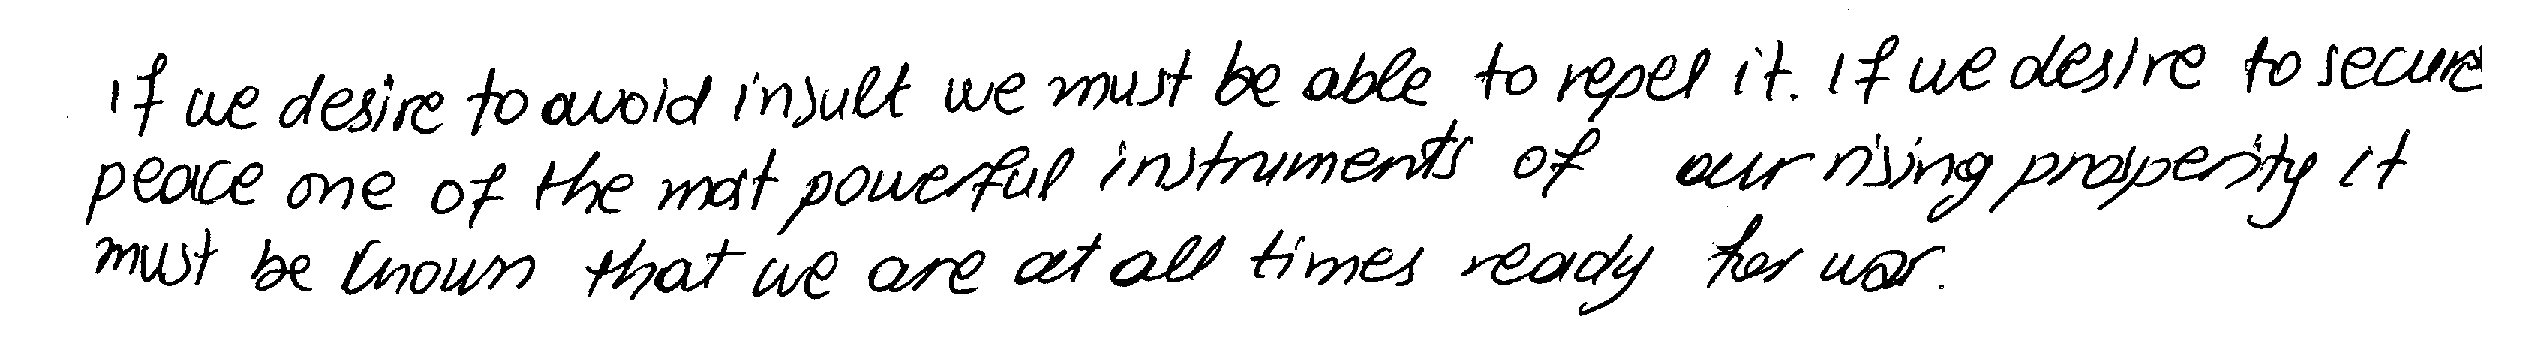 If we desire to avoid insult we must be able to repel it. If we desire to secure
peace one of the most powerful instruments of our rising prosperity it
must be known that we are at all times ready for war.